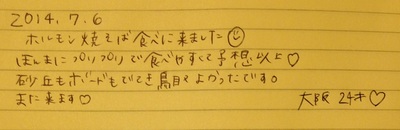 2014.7.6
ホルモン焼そば食べに来ました☺
ほんまにプリプリで食べやすくて予想以上♡
砂丘もボードもできて鳥取よかったです。
また来ます♡ 大阪 24才♡